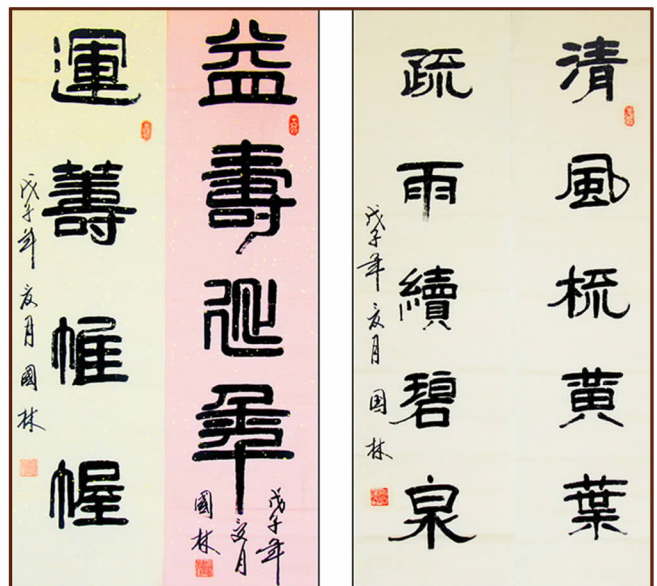 清風梳黄葉
疏雨續碧泉
戊子年夏月国林
益壽延年
戊子年
夏月
國林
運籌帷幄
戊子年夏月國林